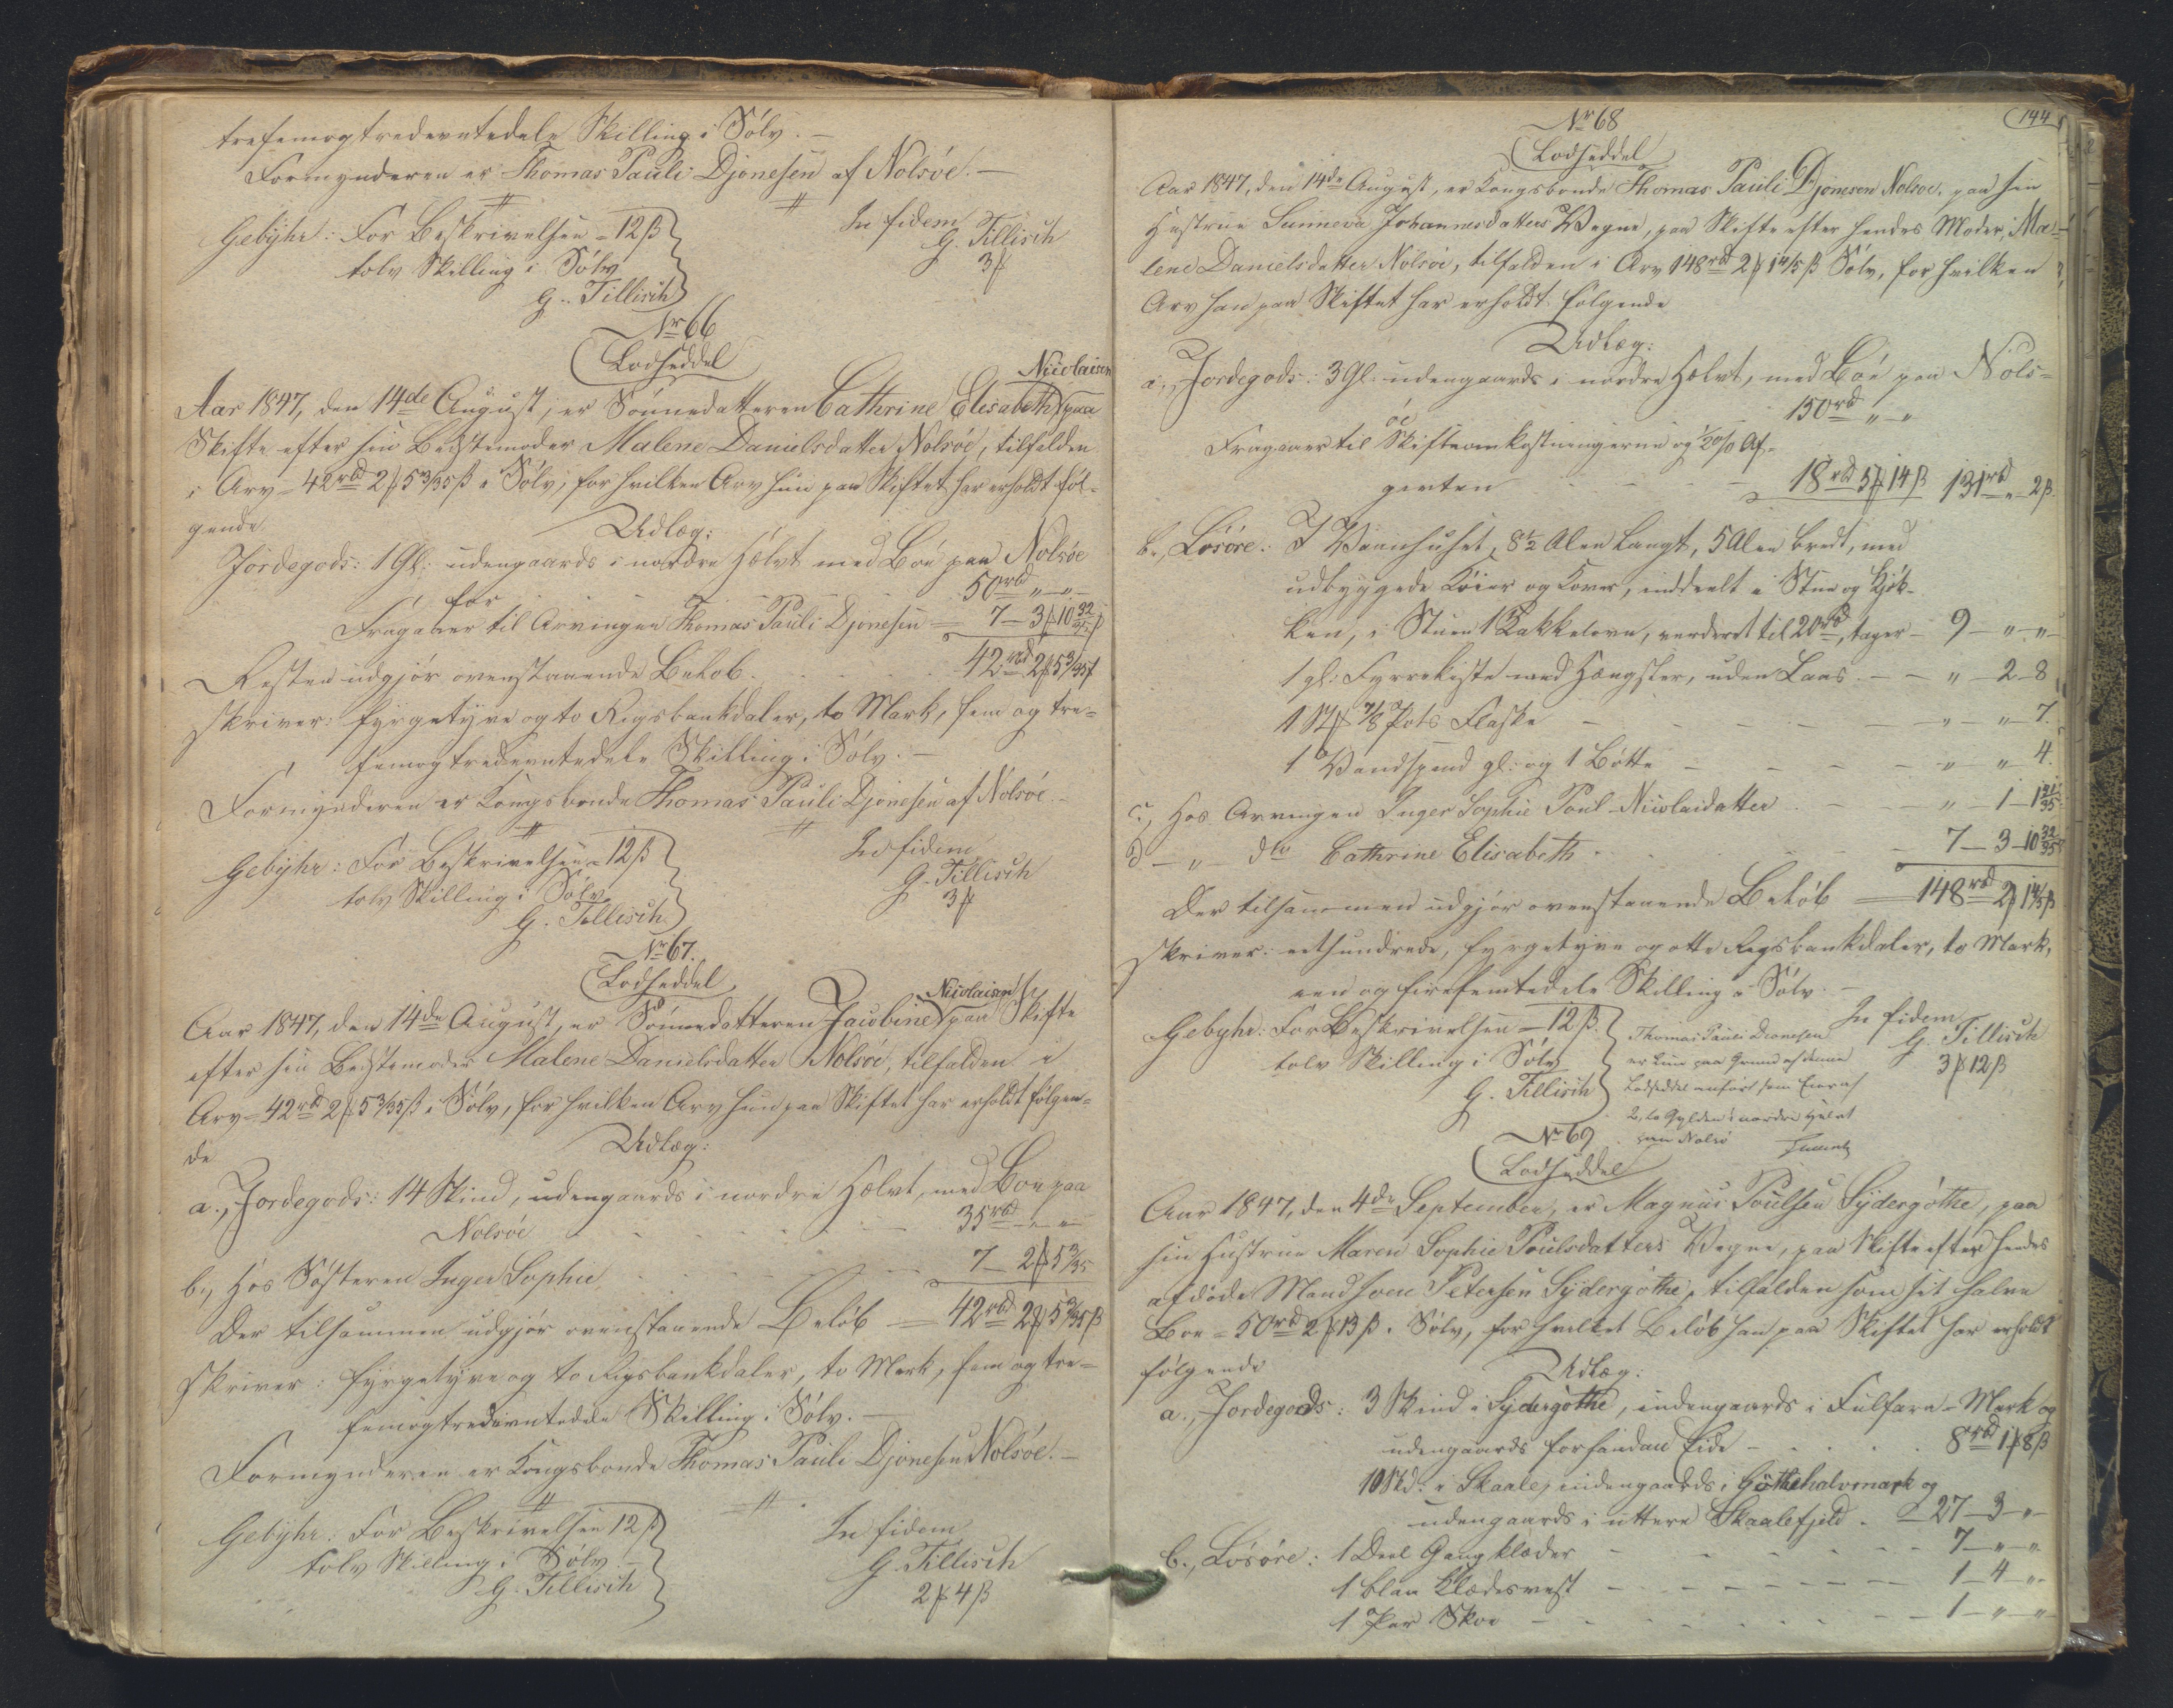 trefemogtredevntedele Skilling i Sølv. –
Formynderen er Thomas Pauli Djonesen af Nolsöe. –
Gebyhr: For Beskrivelsen = 12 β
In fidem
tolv Skilling i Sølv
G. Tillisch
G. Tillisch
3 ₰
Nr 66
Lodseddel
Nicolaisen
Aar 1847, den 14de August, er Sønnedatteren Cathrine Elisabeth paa
Skifte efter sin Bedstemoder Malene Danielsdatter Nolsöe, tilfalden
i Arv = 42 rbd 2 ₰ 5 3/35 β i Sølv, for hvilken Arv hun paa Skiftet har erholdt føl-
gende
Udlæg:
Jordegods: 1 Gl: udengaards i nordre Hælvt med Böe paa Nolsöe
for 50 rbd „ – „ –
Fragaaer til Arvingen Thomas Pauli Djonesen = 7 – 3 ₰ 10 32/35 β
Resten udgjør ovenstaaende Beløb 42 rbd 2 ₰ 5 3/35 β
skriver: fyrgetyve og to Rigsbankdaler, to Mark, fem og tre-
femogtredevntedele Skilling i Sølv. –
Formynderen er Kongsbonde Thomas Pauli Djonesen af Nolsöe. –
Gebyhr: For Beskrivelsen = 12 β
In fidem
tolv Skilling i Sølv
G. Tillisch
G. Tillisch
3 ₰
Nr 67.
Lodseddel
Nicolaisen
Aar 1847, den 14de August, er Sønnedatteren Jacobine paa Skifte
efter sin Bedstemoder Malene Danielsdatter Nolsöe, tilfalden i
Arv = 42 rbd 2 ₰ 5 3/35 β i Sølv, for hvilken Arv hun paa Skiftet har erholdt følgen-
de
Udlæg:
a., Jordegods: 14 Skind, udengaards i nordre Hælvt, med Böe paa
Nolsöe 35 rbd „ – „ –
b., Hos Søsteren Inger Sophie 7 – 2 ₰ 5 3/35
Der tilsammen udgjør ovenstaaende Beløb = 42 rbd 2 ₰ 5 3/35 β
skriver: fyrgetyve og to Rigsbankdaler, to Mark, fem og tre-
femogtredevntedele Skilling i Sølv. –
Formynderen er Kongsbonde Thomas Pauli Djonesen Nolsöe. –
Gebyhr: For Beskrivelsen 12 β
In fidem
tolv Skilling i Sølv. –
G. Tillisch
G. Tillisch
2 ₰ 4 β
144
Nr 68
Lodseddel
Aar 1847, den 14de August, er Kongsbonde Thomas Pauli Djonesen Nolsoe, paa sin
Hustrue Sunneva Johannesdatters Vegne, paa Skifte efter hendes Moder, Ma-
lene Danielsdatter Nolsöe, tilfalden i Arv 148 rbd 2 ₰ 1 4/5 β Sølv, for hvilken
Arv han paa Skiftet har erholdt følgende
Udlæg:
a., Jordegods: 3 Gl: udengaards i nordre Hælvt, med Böe paa Nols-
öe 150 rbd „ „
Fragaaer til Skifteomkostningerne og ½ % Af-
givten 18 rbd 5 ₰ 14 β 131 rbd „ 2 β
b., Løsøre: I Vaanhuset, 8½ Alen langt, 5 Alen bredt, med
udbyggede Køier og Kover, inddeelt i Stue og Kjøk-
ken, i Stuen 1 Kakkelovn, vurderet til 20 rbd, tager – 9 – „ „ –
1 gl: Fyrrekiste med Hængsler, uden Laas – – „ – 2 – 8
1 St: 7/8 Pots Flaske – „ – „ – 7.
1 Vandspand gl: og 1 Bøtte – „ – „ 4.
c., Hos Arvingen Inger Sophie Poul-Nicolaidatter „ – 1 – 1 31/35
d – „ dto Cathrine Elisabeth 7 – 3 – 10 32/35
Der tilsammen udgjør ovenstaaende Beløb = 148 rbd 2 ₰ 1 4/5 β
skriver: eethundrede, fyrgetyve og otte Rigsbankdaler, to Mark,
een og firefemtedele Skilling i Sølv. –
Gebyhr: For Beskrivelsen = 12 β
In fidem
tolv Skilling i Sølv
G. Tillisch
G. Tillisch
3 ₰ 12 β
Thomas Pauli Dionesen
er kun paa Grund af denne
Lodseddel anført som Eier af
2, to Gylden i nordre Hælvt
paa Nolsö
Nr 69
Lodseddel
Aar 1847, den 4de September, er Magnus Poulsen Sydergöthe, paa
sin Hustrue Maren Sophie Poulsdatters Vegne, paa Skifte efter hendes
afdøde Mand Joen Petersen Sydergöthe, tilfalden som sit halve
Boe = 50 rbd 2 ₰ 13 β i Sølv, for hvilket Beløb han paa Skiftet har erholdt
følgende
Udlæg:
a., Jordegods: 3 Skind i Sydergöthe, indengaards i Fulfara-Mark og
udengaards forhandan Eide – 8 rbd 1 ₰ 8 β
10 Skd: i Skaale, indengaards i Göthehalvmark og
udengaards i uttere Skaalefjeld – 27 – 3 – „ –
b., Løsøre: 1 Deel Gangklæder – 7 – „ – „
1 blaa Klædesvest – 1 – 4 – „ –
1 Par Skoe – 1 – „ – „